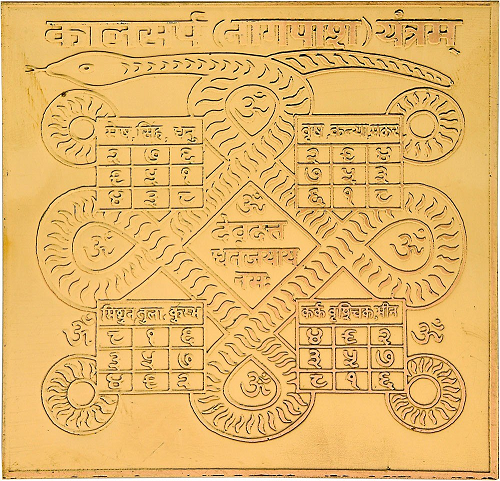 कालसर्प (नागपाश) यंत्रम्
ॐ
मेष, सिंह, धनु
२ ७ ६
९ ५ १
४ ३ ८
वृष, कन्या, मकर
२ ९ ४
७ ५ ३
६ १ ८
ॐ
ॐ
देवदत्त
धनजयाय
नमः
ॐ
मिथुन, तुला, कुम्भ
८ १ ६
३ ५ ७
४ ९ २
कर्क, वृश्चिक, मीन
४ ९ २
३ ५ ७
८ १ ६
ॐ
ॐ
ॐ